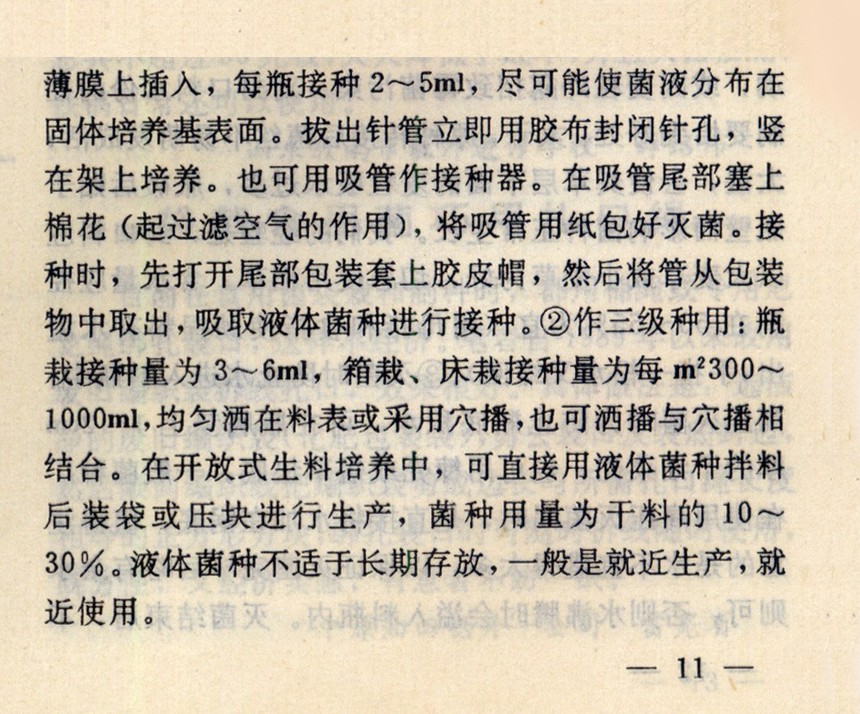 薄膜上插入，每瓶接种2～5ml，尽可能使菌液分布在
固体培养基表面。拔出针管立即用胶布封闭针孔，竖
在架上培养。也可用吸管作接种器。在吸管尾部塞上
棉花（起过滤空气的作用），将吸管用纸包好灭菌。接
种时，先打开尾部包装套上胶皮帽，然后将管从包装
物中取出，吸取液体菌种进行接种。②作三级种用：瓶
栽接种量为3～6ml，箱栽、床栽接种量为每m²300～
1000ml，均匀洒在料表或采用穴播，也可洒播与穴播相
结合。在开放式生料培养中，可直接用液体菌种拌料
后装袋或压块进行生产，菌种用量为干料的10～
30%。液体菌种不适于长期存放，一般是就近生产，就
近使用。
— 11 —